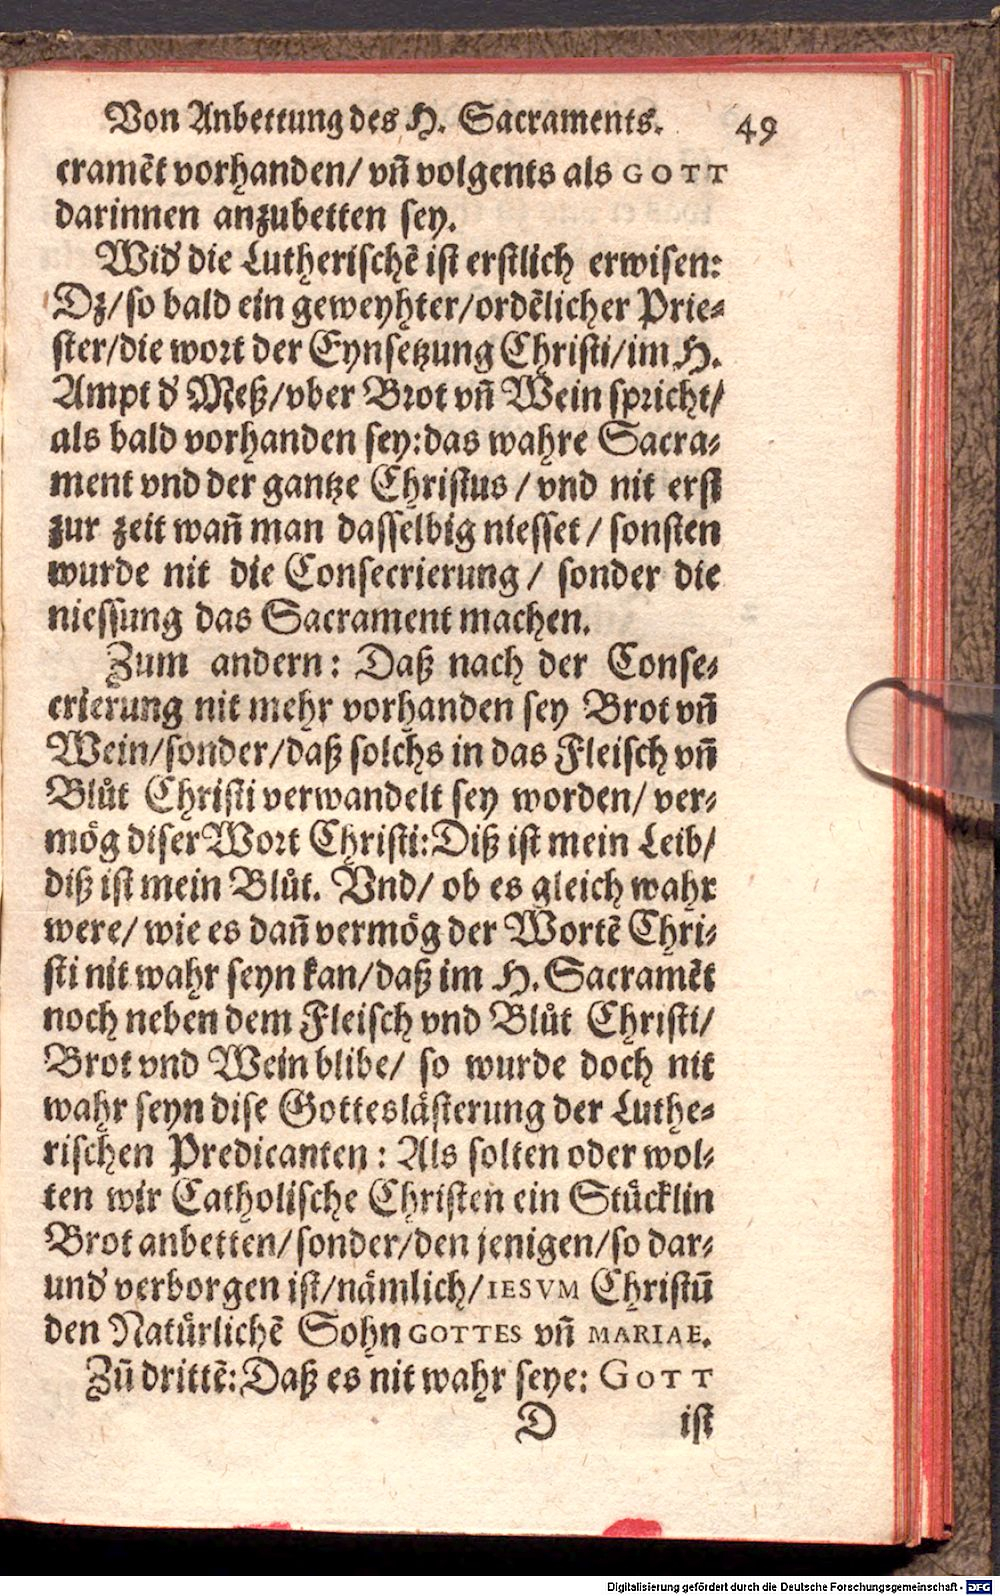 Von Anbettung des H. Sacraments. 49
cramẽt vorhanden/ vñ volgents als GOTT
darinnen anzubetten sey.
Wid᷑ die Lutherischẽ ist erstlich erwisen:
Dz/ so bald ein geweyhter/ ordẽlicher Prie-
ster/ die wort der Eynsetzung Christi/ im H.
Ampt d᷑ Meß/ vber Brot vñ Wein spricht/
als bald vorhanden sey: das wahre Sacra-
ment vnd der gantze Christus / vnd nit erst
zur zeit wañ man dasselbig niesset / sonsten
wurde nit die Consecrierung / sonder die
niessung das Sacrament machen.
Zum andern: Daß nach der Conse-
crierung nit mehr vorhanden sey Brot vñ
Wein/ sonder/ daß solchs in das Fleisch vñ
Blůt Christi verwandelt sey worden/ ver-
mög diser Wort Christi: Diß ist mein Leib/
diß ist mein Blůt. Vnd/ ob es gleich wahr
were/ wie es dañ vermög der Wortẽ Chri-
sti nit wahr seyn kan/ daß im H. Sacramẽt
noch neben dem Fleisch vnd Blůt Christi/
Brot vnd Wein blibe/ so wurde doch nit
wahr seyn dise Gotteslästerung der Luthe-
rischen Predicanten : Als solten oder wol-
ten wir Catholische Christen ein Stücklin
Brot anbetten/ sonder/ den jenigen/ so dar-
und᷑ verborgen ist/ nämlich/ IESVM Christũ
den Natürlichẽ Sohn GOTTES vñ MARIAE.
Zũ drittẽ: Daß es nit wahr seye: GOTT
D ist
Digitalisierung gefördert durch die Deutsche Forschungsgemeinschaft - DFG